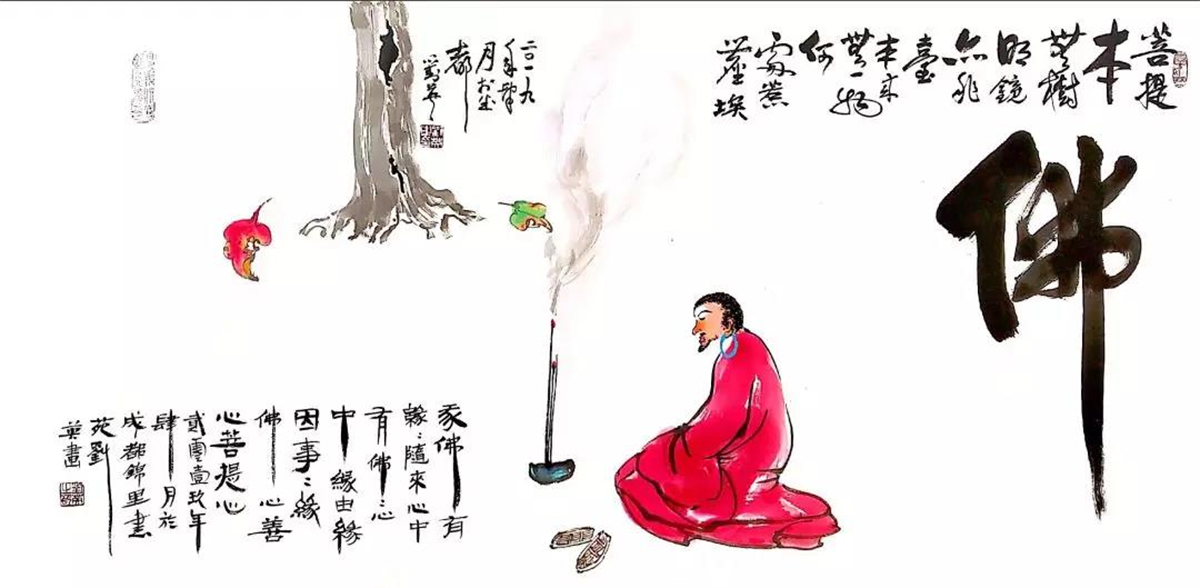 菩提
本
無樹
明鏡
亦非
臺
本来
無一物
何
處惹
塵埃
佛
二〇一九
年肆
月於成
都
劉英
佛有
緣〻隨来心中
有佛〻心
中緣由緣
因事〻緣
佛心善
心菩提心
貳零壹玖年
肆月於
成都錦里畫
苑劉
英畫